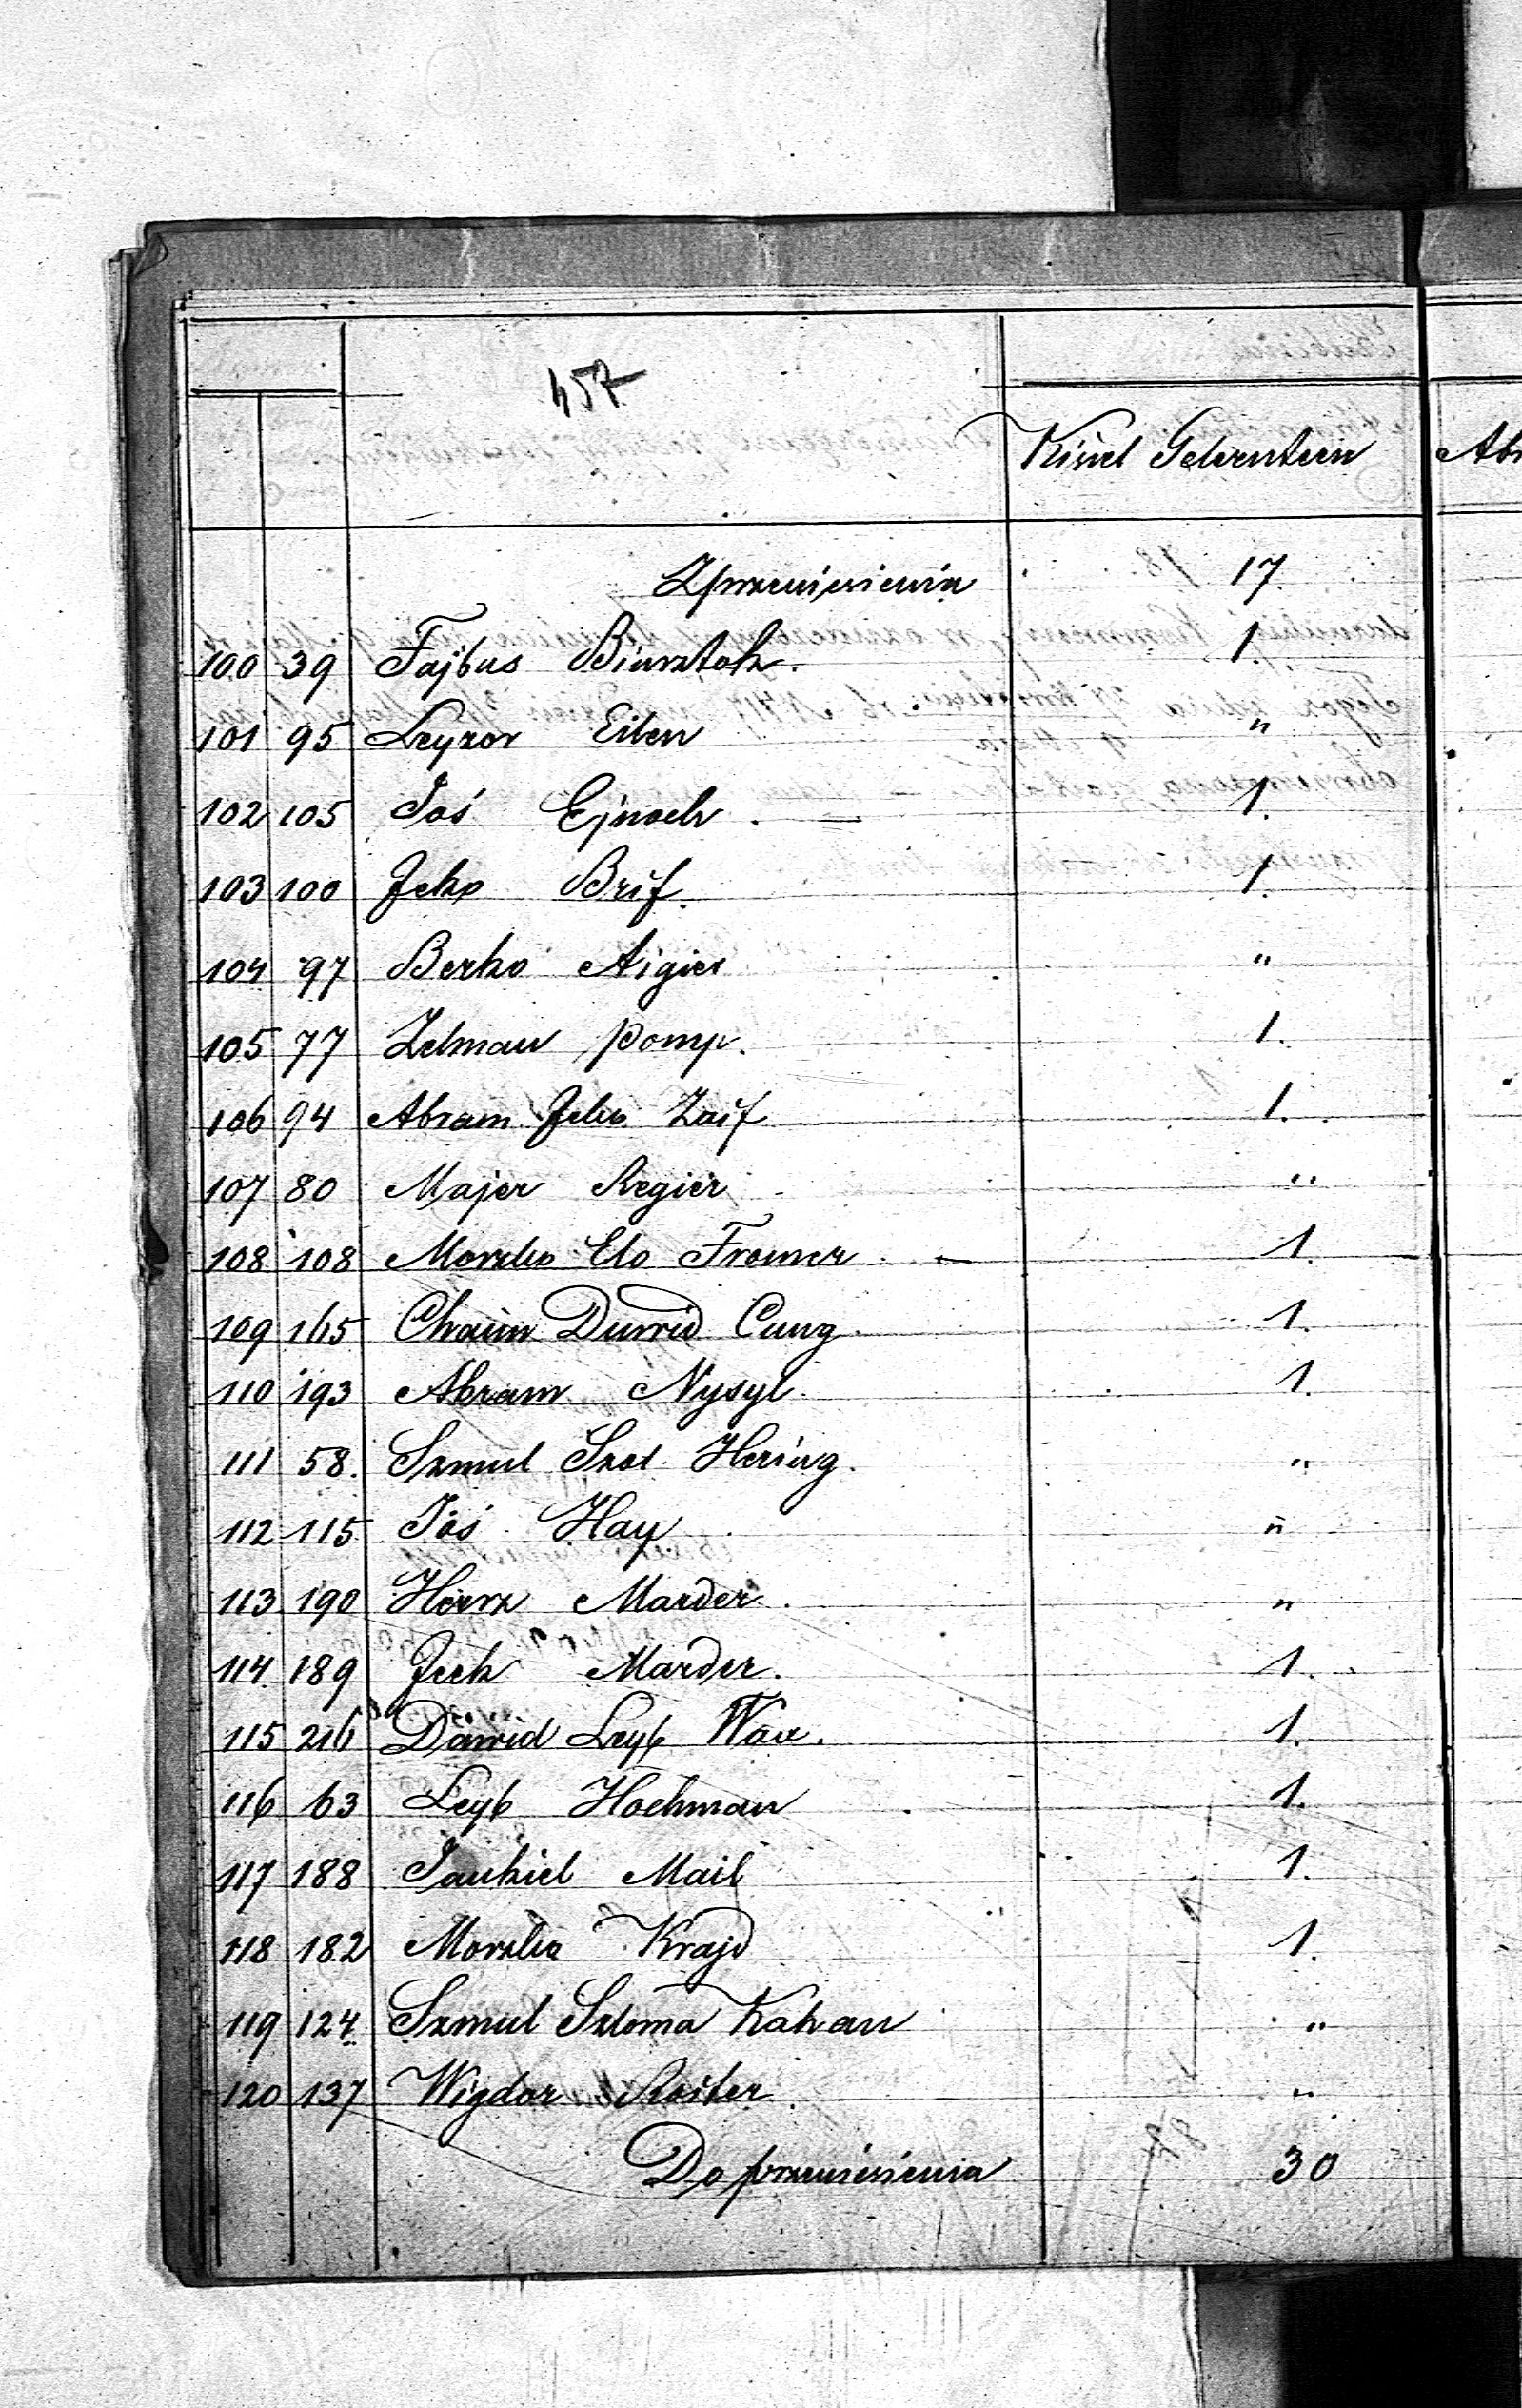 457
Kisiel Gelernten
Z przeniesienia 17.
100 39 Fajbus Binsztok. 1.
101 95 Leyzor Eilen "
102 105 Joś Ejnoch. 1.
103 100 Jcko Brif. 1.
104 97 Berko Aigier "
105 77 Zelman Pomp. 1.
106 94 Abram Jcko Zaif 1.
107 80 Majer Regier "
108 108 Morzko Elo Fromer 1.
109 165 Chaim Dawid Cung. 1.
110 193 Abram Nysyl. 1.
111 58. Szmul Hering. "
112 115 Joś Hay "
113 190 Marder. "
114 189 Jcek Marder. 1.
115 216 Dawid Leyb Wax. 1.
116 63 Leyb Hochman 1.
117 188 Jankiel Mail 1.
118 182 Morzko Krajd 1.
119 124. Szmul Szloma Kahan "
120 137 Wigdor Roiter. "
Do przeniesienia 30